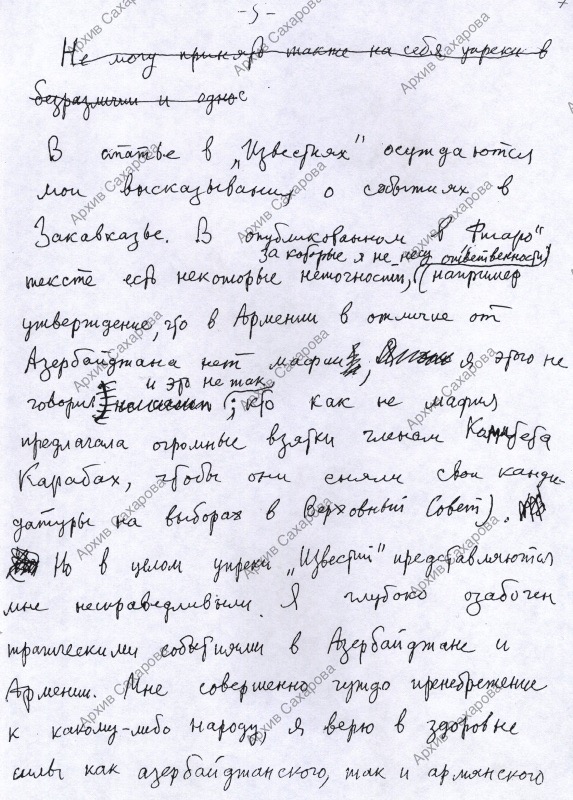 -5-
Не могу принять также на себя упреки в
безразличии и однос
В статье в „Известиях" осуждаются
мои высказывания о событиях в
Закавказье. В опубликованном в „Фигаро"
за которые я не несу ответственности)
тексте есть некоторые неточности, (например
утверждение, что в Армении в отличие от
Азербайджана нет мафии, я этого не
и это не так
говорил; кто как не мафия
предлагала огромные взятки членам Комитета
Карабах, чтобы они сняли свои канди-
датуры на выборах в Верховный Совет).
Но в целом упреки „Известий" представляются
мне несправедливыми. Я глубоко озабочен
трагическими событиями в Азербайджане и
Армении. Мне совершенно чуждо пренебрежение
к какому-либо народу, я верю в здоровые
силы как азербайджанского, так и армянского
Архив Сахарова